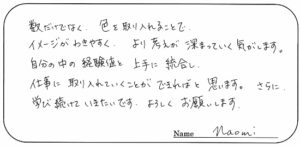 数だけでなく、色を取り入れることで、
イメージがわきやすく、より考えが深まっていく気がします。
自分の中の経験値と上手に統合し、
仕事に取り入れていくことができればと思います。さらに、
学び続けていきたいです。よろしくお願いします。
Name Naomi